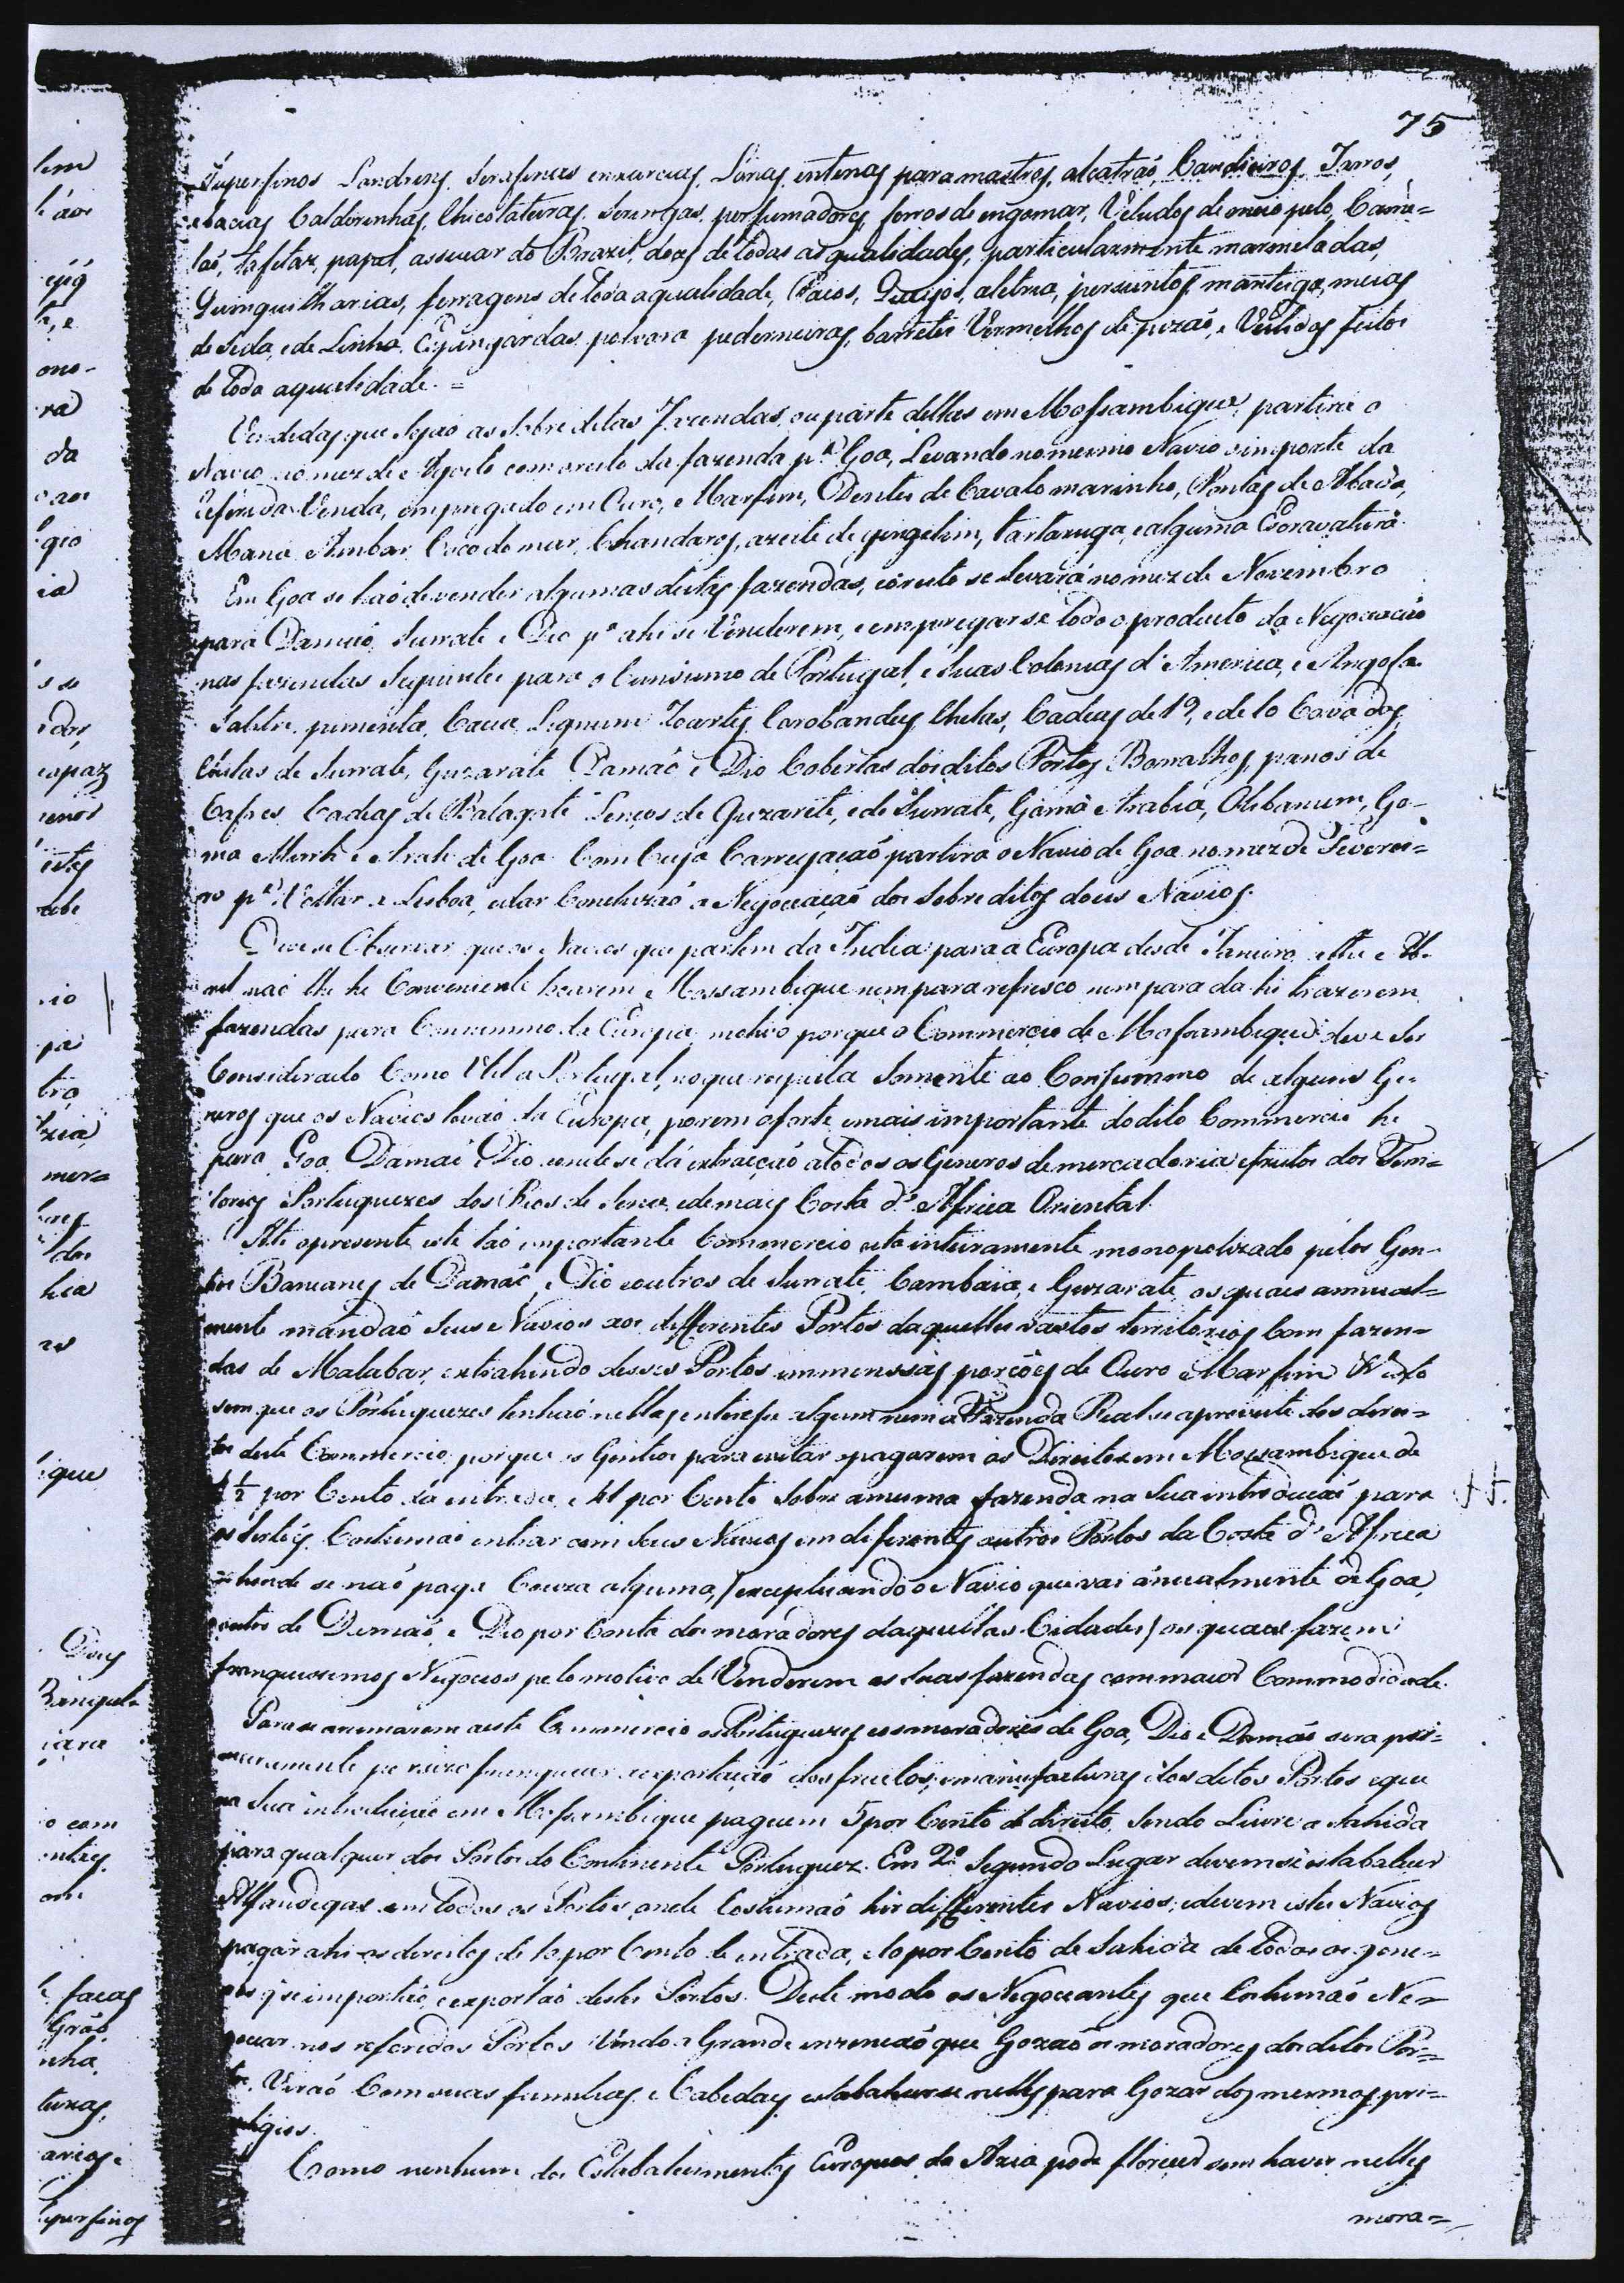 75
Superfinos Londrins, Serafinas enxarcias, Lonas, entenas para mastros, alcatraõ, Candieiros, Jarros,
e bacias Caldeirinhas, Chicolateiras, Seringas, perfumadores, ferros de engomar, Veludos de meio pelo, Came=
laõ, tafetaz, papel, assucar do Brazil, doces de todas as qualidades, particularmente marmeladas,
Quinquilharias, ferragens de toda a qualidade, Paios, Queijos, aletria, persuntos, manteiga, meias
de Seda, e de Linho. Espingardas polvora pederneiras, barretes Vermelhos de pizaõ, e Vestidos feitos
de toda a qualidade. =
Vendidas que sejaõ as sobreditas Fazendas, ou parte dellas em Mossambique, partirá o
Navio no mez de Agosto com o resto da fazenda pª Goa, Levando no mesmo Navio o importe da
referida Venda, empregado em Ouro, Marfim, Dentes de Cavalo marinho, Pontas de Abada,
Maná, Ambar, Coco do mar, Chandaros, azeite de gingelim, tartaruga, e alguma Escravatura.
Em Goa se haõ de vender algumas destas fazendas, e o resto se levará no mez de Novembro
para Damaõ, Surrate e Dio pª ahi se Venderem, e empregarse todo o producto da Negociaçaõ
nas fazendas Seguintes para o Consumo de Portugal, e Suas Colonias d'America, e Angola.
Salitre, pimenta, Cauris, Lignum Zuartes, Corobandes, Chelas, Cadeas de 19, e de 10 Covados,
Chitas de Surrate, Guzarate Damaõ e Dio Cobertas dos ditos Portos, Borralhos, panos de
Cafres, Cadeas de Balagate Lenços de Guzarate, e de Surrate, Goma Arabia, Olibanum, Go-
ma Mirrh, e Arak de Goa. Com Cuja Carregaçaõ partirá o Navio de Goa no mez de Feverei=
ro pª Voltar a Lisboa, e dar Concluzaõ a Negociaçaõ dos Sobreditos dous Navios.
Deve se Observar que os Navios que partem da India para a Europa desde Janeiro athe Ab-
ril naõ lhe he Conveniente tocarem Mossambique nem para refresco nem para da hi trazerem
fazendas para Consummo da Europa, motivo porque o Commercio de Mossambique deve ser
Considerado Como Util a Portugal, no que respeita Somente ao Consummo de alguns Ge-
neros que os Navios levaõ da Europa, porem o forte, e mais importante do dito Commercio he
para Goa, Damaõ e Dio, onde se dá extracçaõ a todos os Generos de mercadoria, e frutos dos Terri=
torios Portuguezes dos Rios de Sena, e de mais Costa d'Africa Oriental.
Até o presente este taõ importante Commercio está inteiramente monopolizado pelos Gen-
tios Baneanes de Damaõ, e Dio e outros de Surrate, Cambaia, e Guzarate, os quaes annual=
mente mandaõ Seus Navios aos differentes Portos daquelles vastos territorios Com fazen=
das de Malabar, extrahindo desses Portos immensas porçoes de Ouro e Marfim &ª isto
sem que os Portuguezes tenhaõ nellas interesse algum nem a Fazenda Real se aproveite dos direi=
tos deste Commercio, porque os Gentios para evitar o pagarem os Direitos em Mossambique de
4 ½ por Cento da entrada, e 41 por Cento Sobre a mesma fazenda na Sua introduçaõ para
os Sertoẽs, Costumaõ entrar com Seus Navios em diferentes outros Portos da Costa d'Africa
aonde se naõ paga Couza alguma, (exceptuando o Navio que vai anualmente de Goa,
e outro de Damaõ e Dio por Conta dos moradores daquellas Cidades) os quaes fazem
franquissimos Negocios pelo motivo de Venderem as Suas fazendas com maior Commodidade.
Para se animarem a este Commercio os Portuguezes e os moradores de Goa, Dio e Damaõ sera pri=
meiramente precizo franquear a exportaçaõ dos fructos, e manufacturas dos ditos Portos e que
na Sua introduçaõ em Mossambique paguem 5 por Cento de direito, Sendo Livre a Sahida
para qualquer dos Portos do Continente Portuguez. Em 2º Segundo Lugar devem se estabalecer
Alfandegas em todos os Portos, onde Costumaõ hir differentes Navios; e devem estes Navios
pagar ahi os direitos de 10 por Cento de entrada, e 10 por Cento de Sahida de todos os gene=
ros que importaõ, e exportaõ destes Portos. Deste modo os Negociantes que Costumaõ Ne=
gociar nos referidos Portos Vendo a Grande inzençaõ que Gozaõ os moradores dos ditos Por=
tos, Viraõ Com suas familias, e Cabedaes estabalecerse nelles para Gozar dos mesmos pri=
viligios.
Como nenhum dos Estabalecimentos Europeos da Azia pode florecer sem haver nelles
mora=